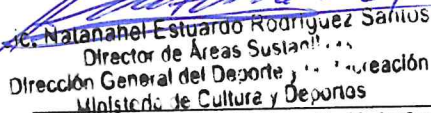 Lic. Natanahel Estuardo Rodríguez Santos
Director de Áreas
Dirección General del Deporte y
Ministerio de Cultura y Deportes